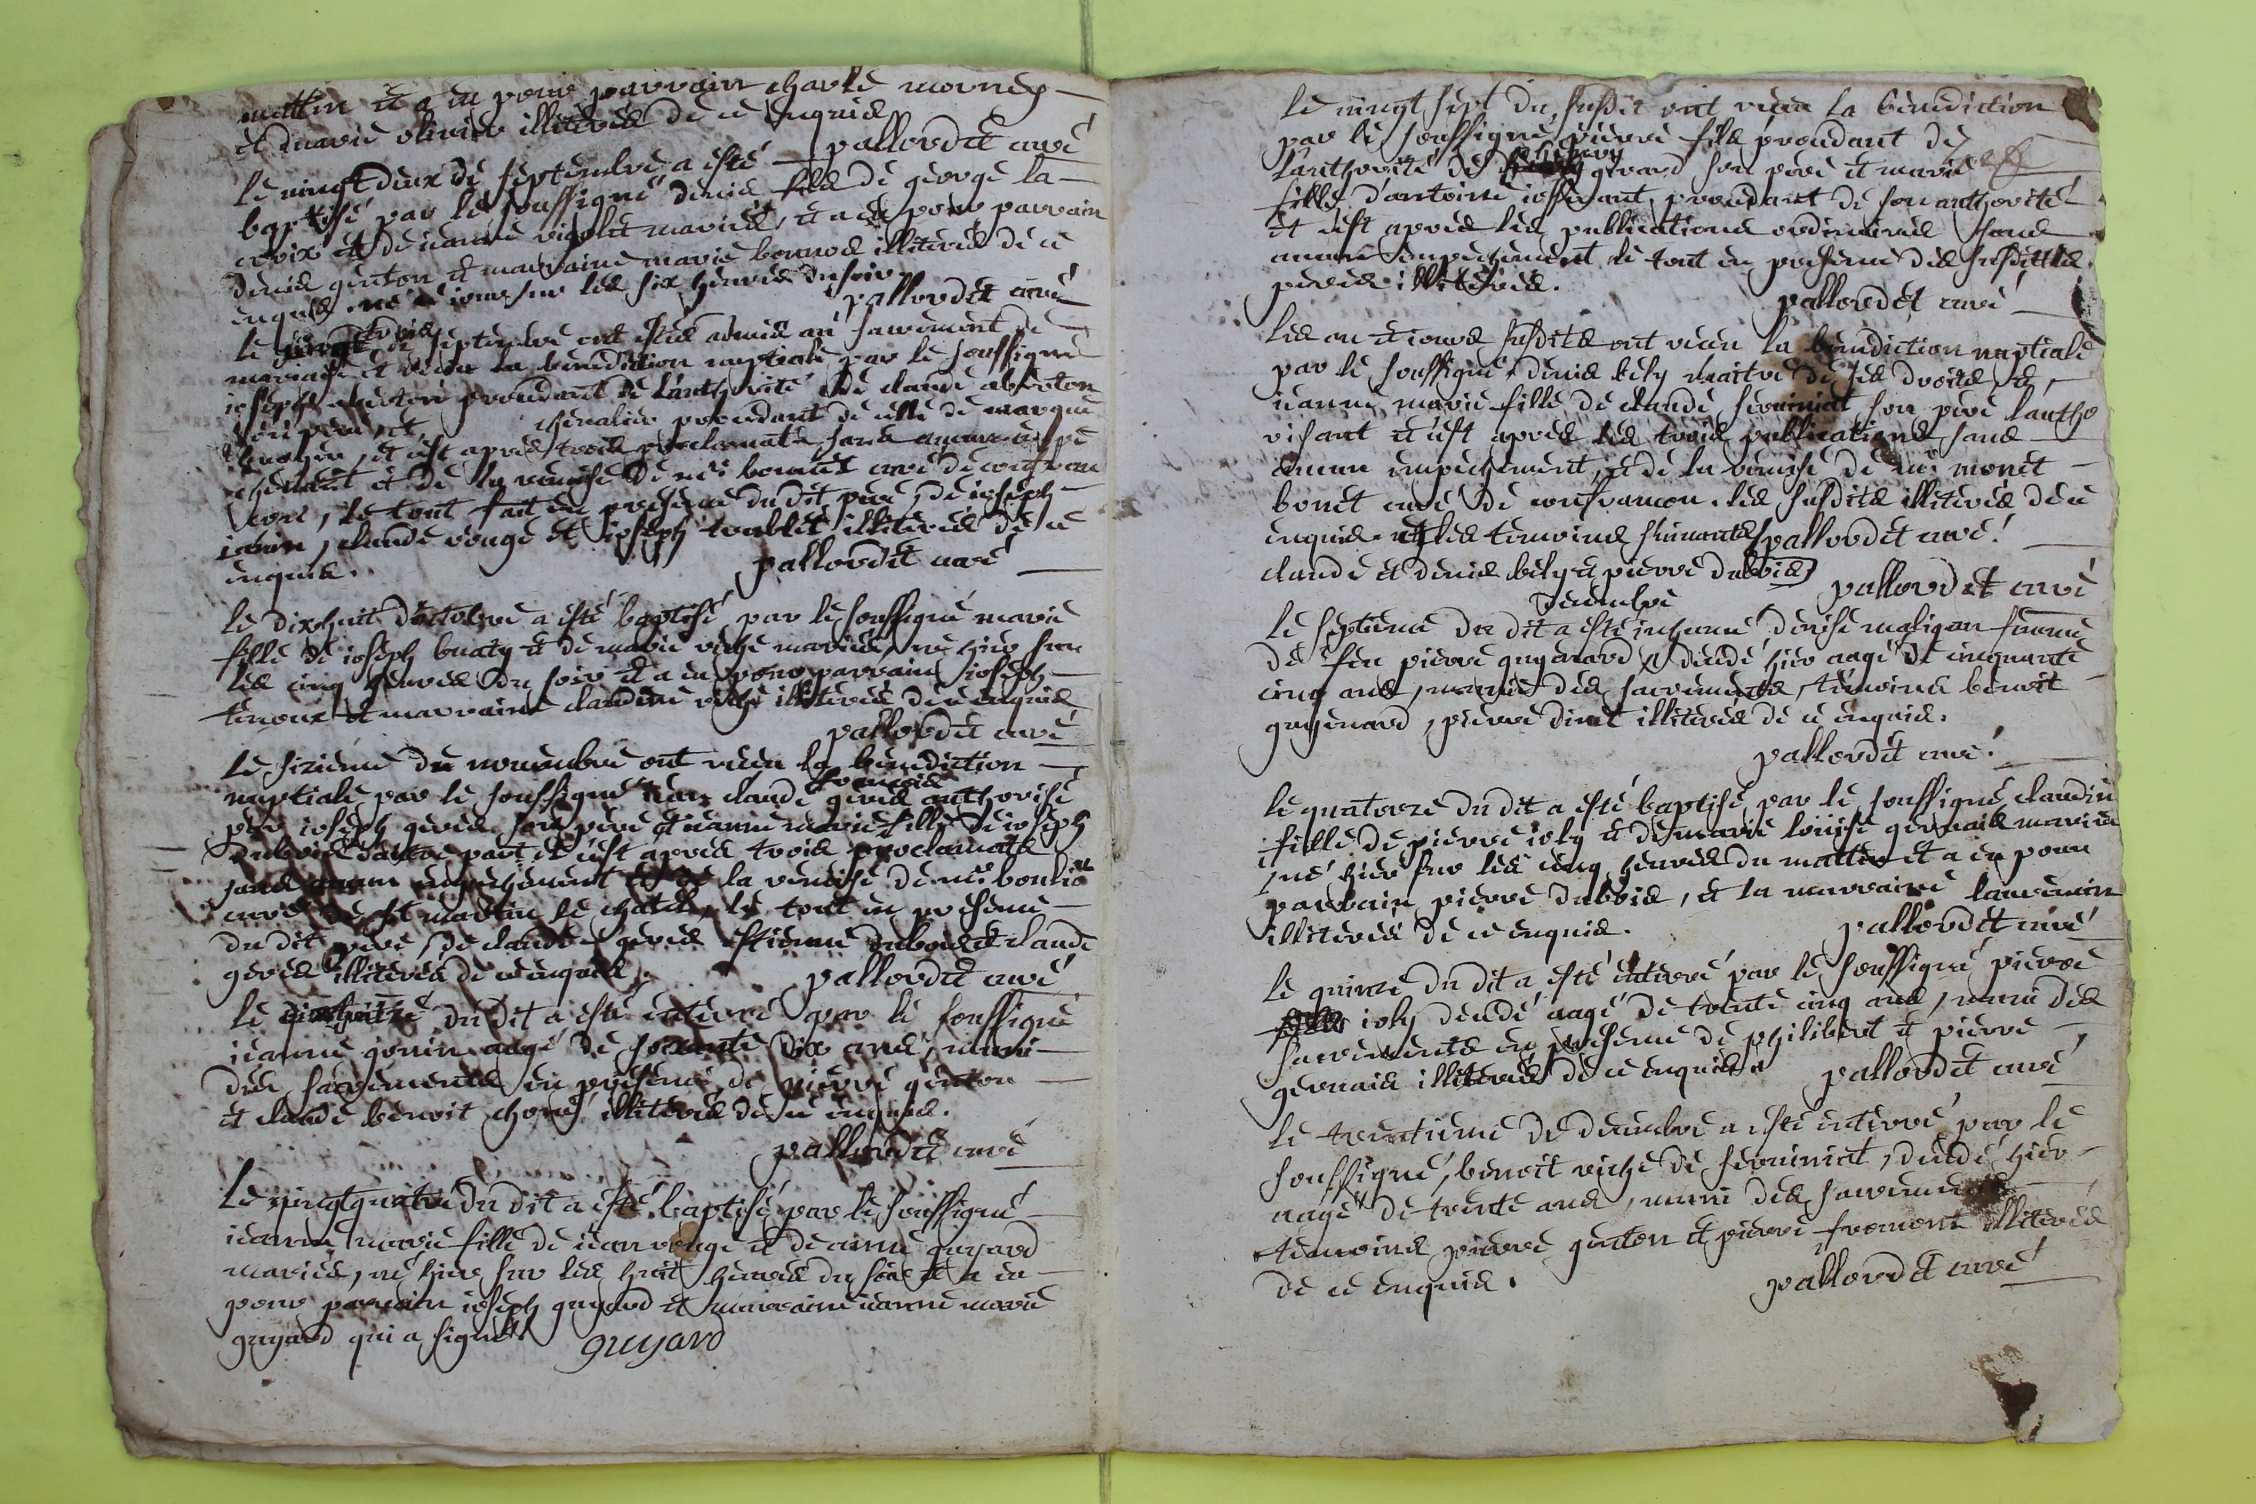 mattin et a eu pour parrain charle morney
et marie olivier illiterés de ce enquis
pallordet curé
le vingt deux de septembre a esté
baptisé par le soussigné denis fils de george la
croix et de jeanne violet mariés, et a eu pour parrain
denis genton et marraine marie bonnod illiterés de ce
enquis. né ce jour sur les six heures du soir.
pallordet curé
le trois de septembre ont estés admis au sacrement de
mariage et receu la benediction nuptiale par le soussigné
joseph procedant de l'authorité de claude
son pere, et chevalier procedant de celle de
et c'est apres trois proclamats sans aucun empe
chement et de la remise de mre bonnet curé de
le tout fait en presence du dit pere, de joseph
janin, claude rouge et joseph illiterés de ce
enquis.
pallordet curé
le dixhuit d'octobre a esté baptisé par le soussigné marie
fille de joseph buaty et de marie riche mariés, né hier sur
les cinq heures du soir et a eu pour parrain joseph
tenoux et marraine claudine riche illiterés de ce enquis
pallordet curé
le sizieme de novembre ont receu la benediction
francois
nuptiale par le soussigné jean claude geres authorisé
par joseph geres son pere et jeanne marie fille de joseph
dubois d'autre part et c'est apres trois proclamats
sans aucun empechement et de la remise de mre
curé de st martin le chatel, le tout en presence
du dit pere, de claude geres estienne dubois et claude
geres illiterés de ce enquis.
pallordet curé
le du dit a esté enterré par le soussigné
jeanne gonin aagé de soixante dix ans, muni
des sacrements en presence de pierre genton
et claude benoit illiterés de ce enquis.
pallordet curé
Le vingtquatre du dit a esté baptisé par le soussigné
jeanne marie fille de jean rouge et de anne guyard
mariés, né hier sur les huit heures du soir et a eu
pour parrain joseph guyard et marraine jeanne marie
guyard qui a signé
guyard
le vingt sept du susdit ont receu la benediction
par le soussigné, pierre fils procedant de
l'authorité de girard son pere et marie
fille d'antoine procedant de son authorité
et c'est apres les publications ordinaires sans
aucun empechement le tout en presence des susdittes
peres illiterés.
pallordet curé
Les an et jours susdits ont receu la benediction nuptiale
par le soussigné, denis bely maitre de ses droits, et
jeanne marie fille de claude son pere l'autho
risant et c'est apres les trois publications sans
aucun empechement, et de la remise de mre monet
bonet curé de les susdits illiterés de ce
enquis. et les temoins suivants pallordet curé.
claude et denis bely et pierre dubois
pallordet curé
decembre
le septieme du dit a esté inhumé denise maligon femme
de feu pierre guyenard decedé hier aagé de cinquante
cinq ans, munie des sacrements, temoins benoit
guyenard, pierre illiterés de ce enquis.
pallordet curé.
le quatorze du dit a esté baptisé par le soussigné claudine
fille de pierre joly et de marie louise gervais mariés
né hier sur les cinq heures du mattin et a eu pour
parrain pierre dubois, et la marraine
illiterés de ce enquis.
pallordet curé
le quinze du dit a esté enterré par le soussigné pierre
joly decedé aagé de trente cinq ans, muni des
sacrements en presence de philibert et pierre
gervais illiterés de ce enquis
pallordet curé
le trentieme de decembre a esté enterré par le
soussigné, benoit riche de decedé hier
aagé de trente ans, muni des sacrements
temoins pierre genton et pierre fromont illiterés
de ce enquis.
pallordet curé